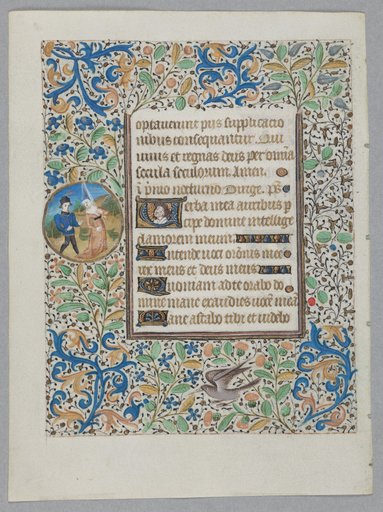 optaverunt piis supplicatio
nibus consequantur. Qui
vivis et regnas deus per omnia
secula seculorum. Amen.
In primo nocturno Dirige. ps
Verba mea auribus p
cipe domine intellige
clamorem meum.
Intende voci orationis mee
rex meus et deus meus
Quoniam ad te orabo do
mine mane exaudies vocem mea
Mane astabo tibi et videbo